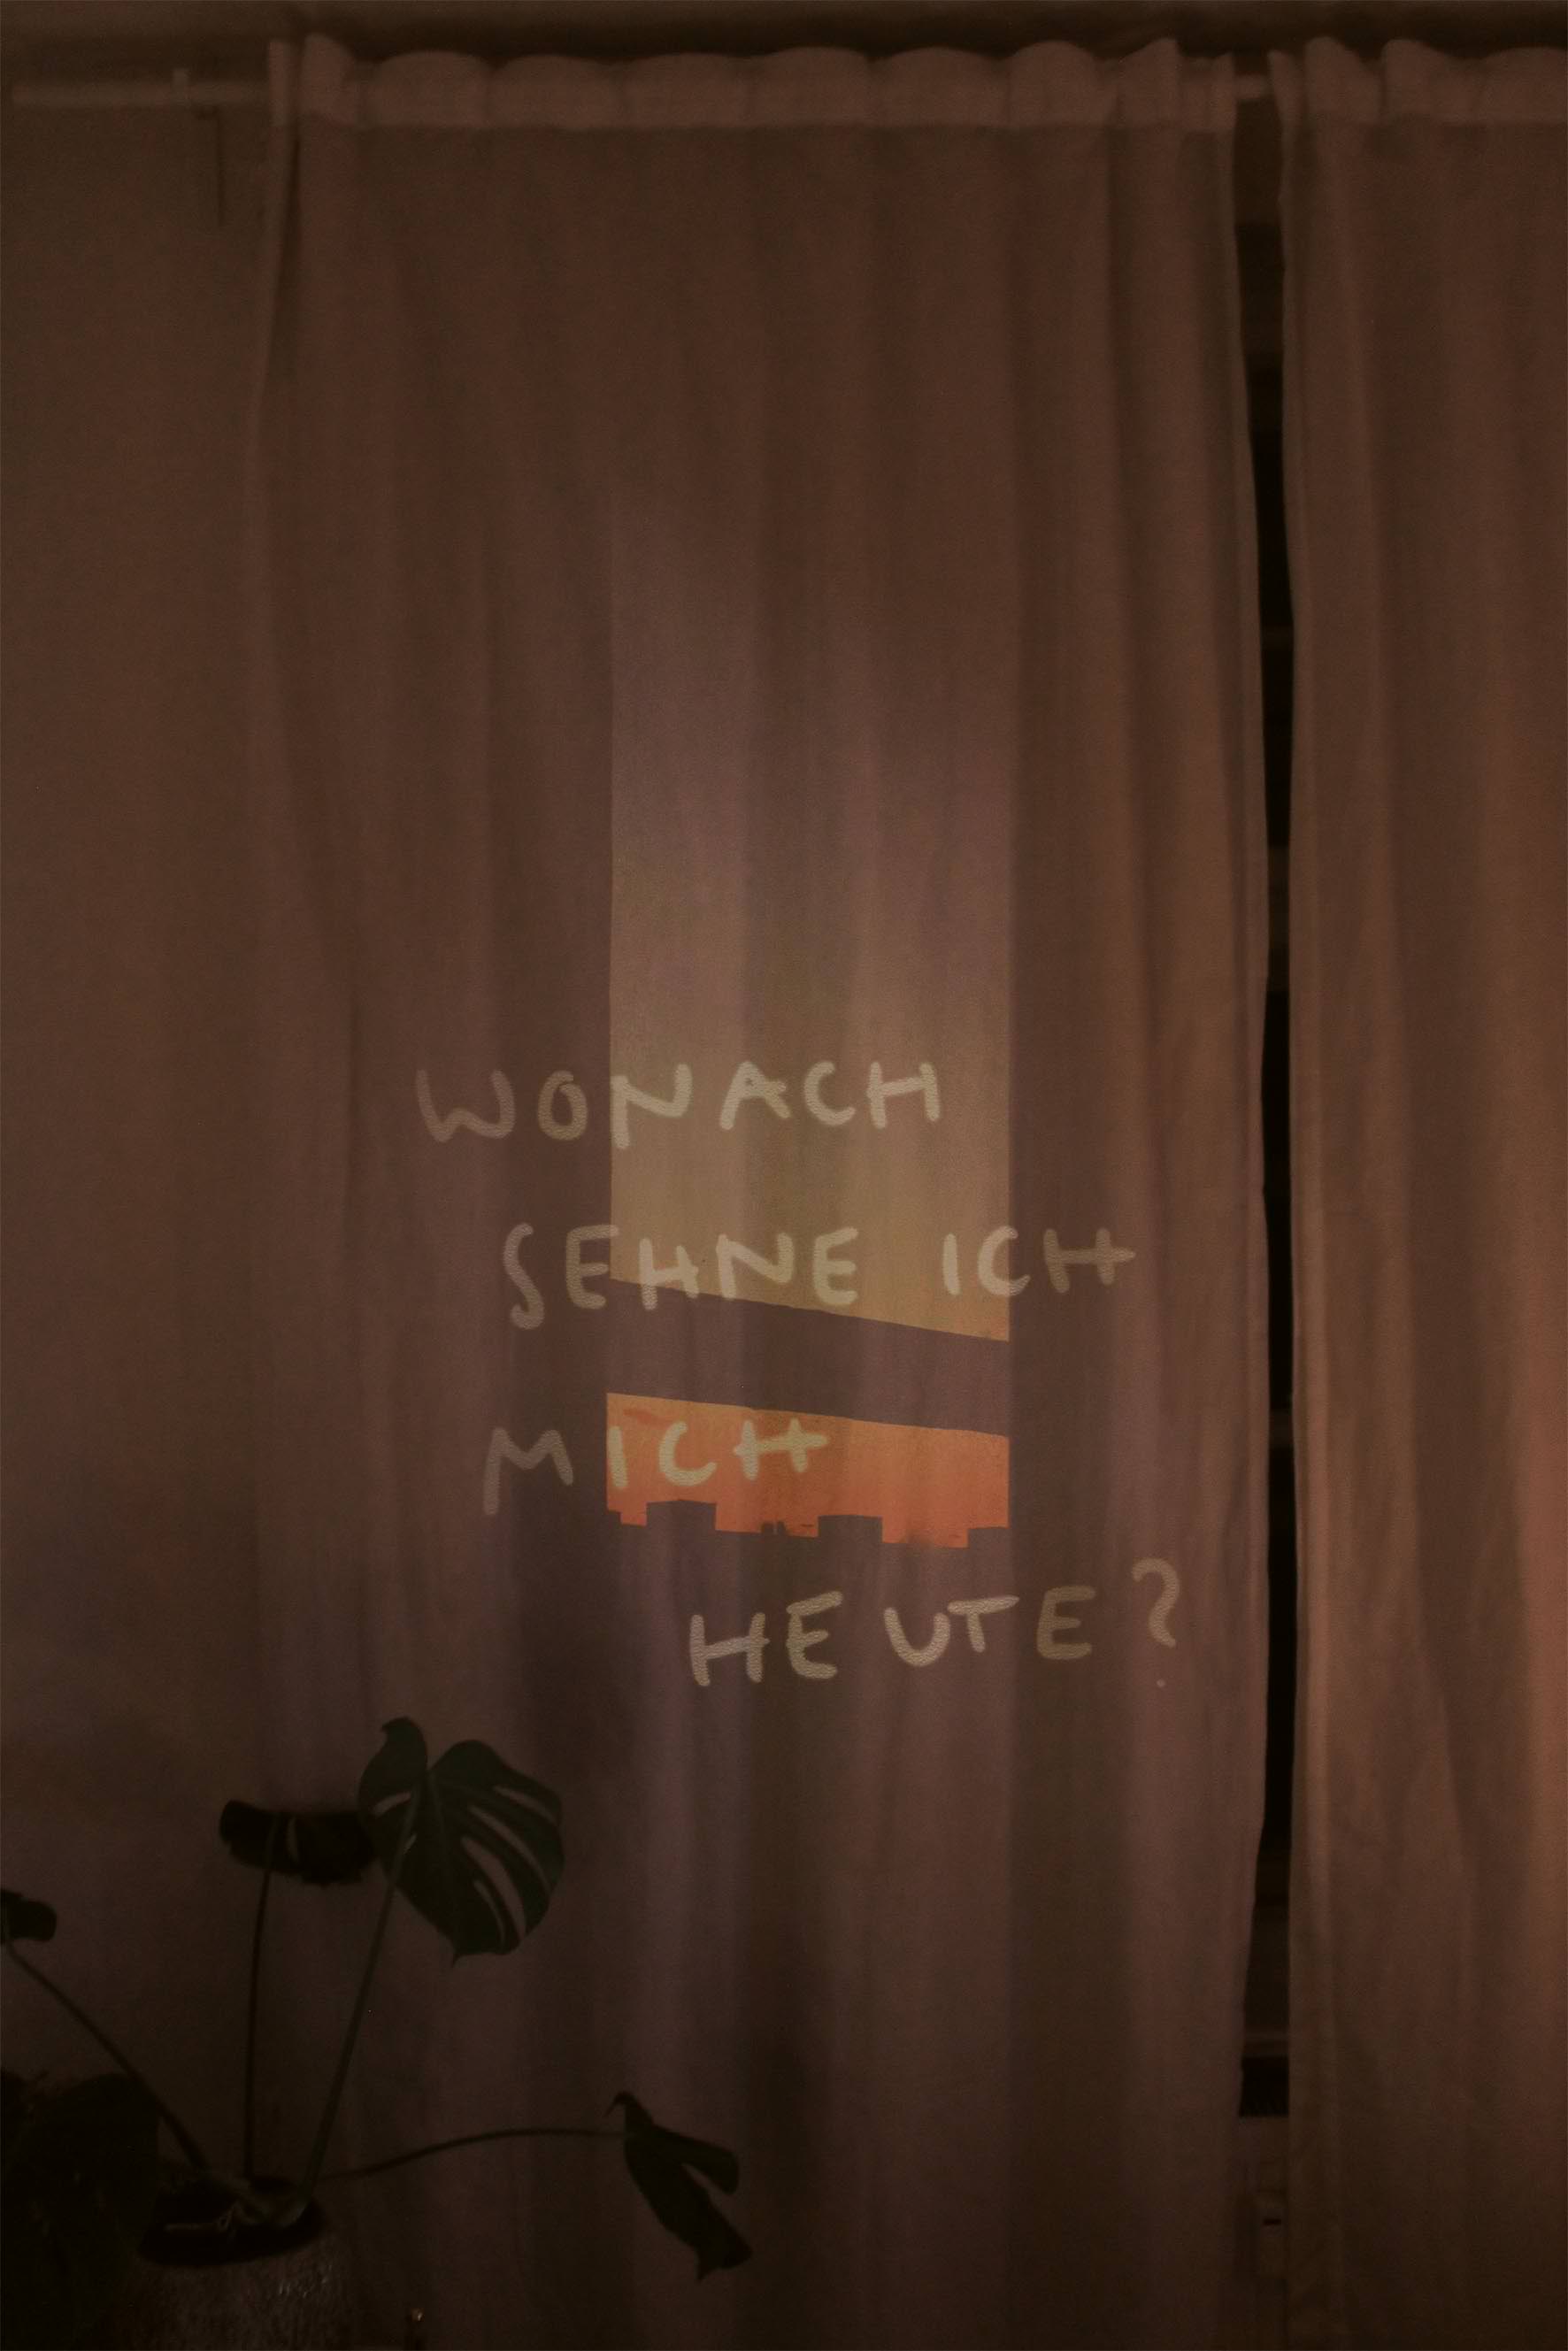 WONACH
SEHNE ICH
MICH
HEUTE?